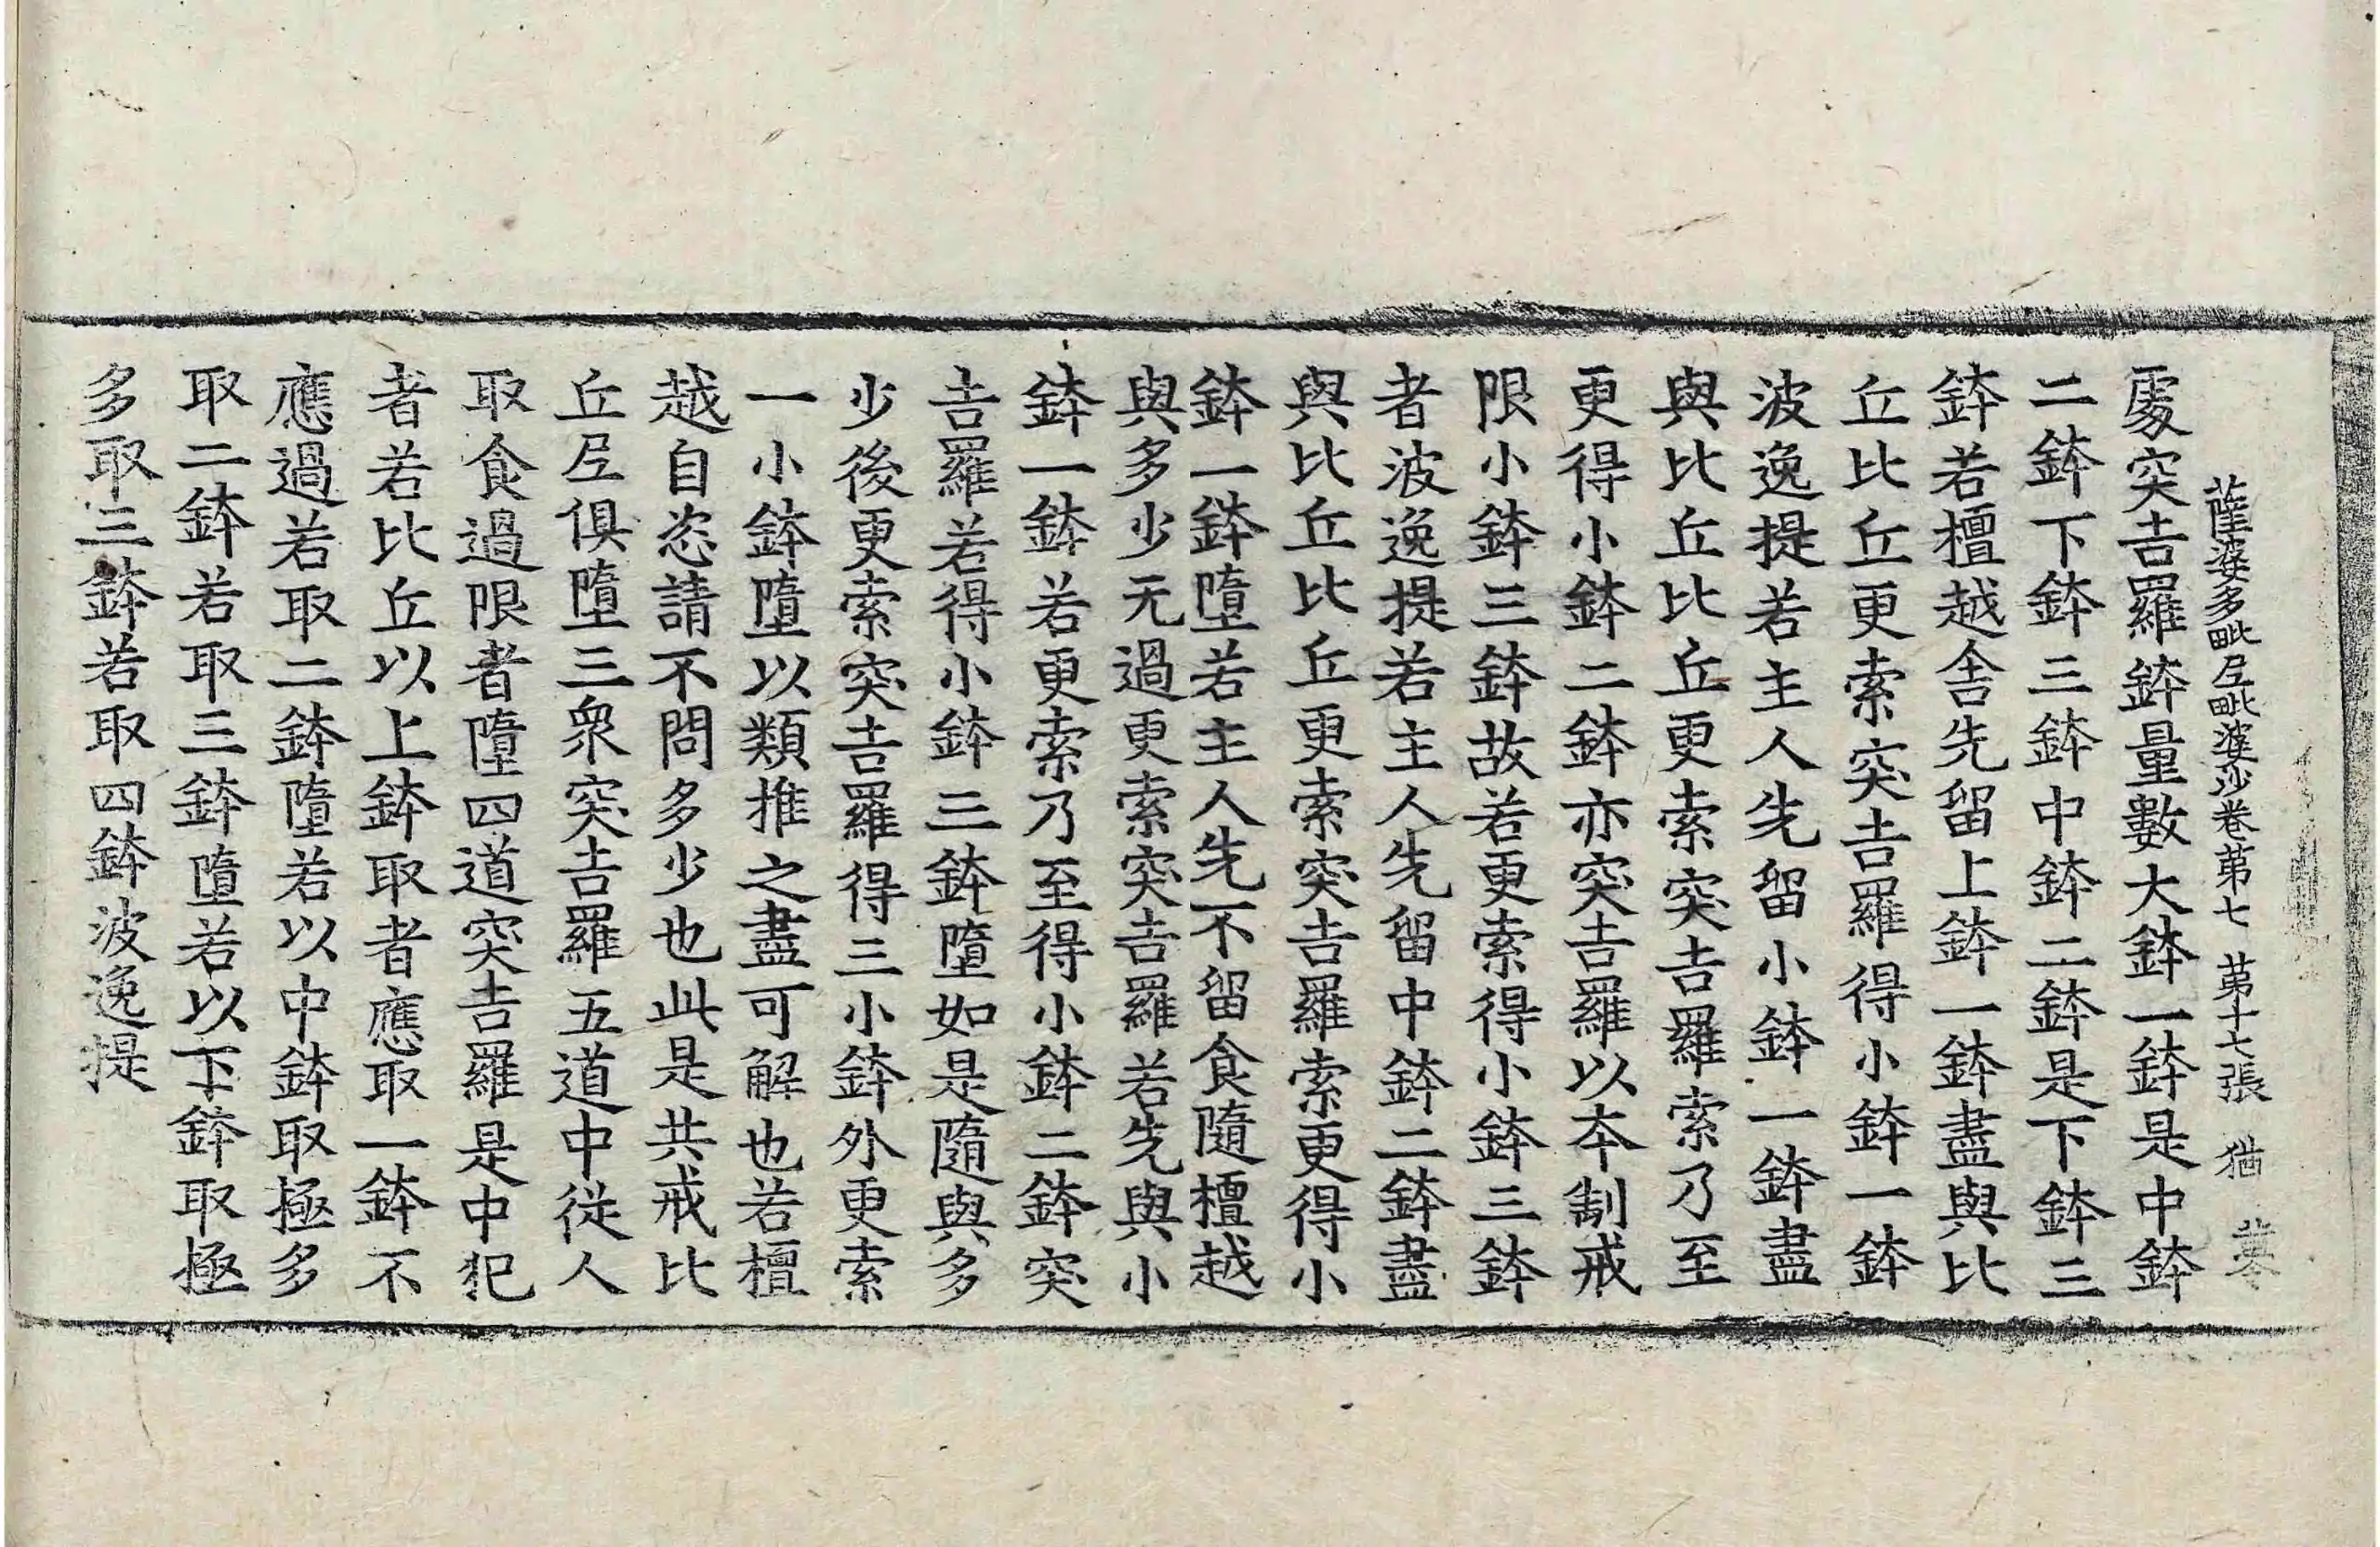 薩婆多毗尼毗婆沙卷第七 第十七張 猶
處突吉羅鉢量數大鉢一鉢是中鉢
二鉢下鉢三鉢中鉢二鉢是下鉢三
鉢若檀越舍先留上鉢一鉢盡與比
丘比丘更索突吉羅得小鉢一鉢
波逸提若主人先留小鉢一鉢盡
與比丘比丘更索突吉羅索乃至
更得小鉢二鉢亦突吉羅以本制戒
限小鉢三鉢故若更索得小鉢三鉢
者波逸提若主人先留中鉢二鉢盡
與比丘比丘更索突吉羅索更得小
鉢一鉢墮若主人先不留食隨檀越
與多少无過更索突吉羅若先與小
鉢一鉢若更索乃至得小鉢二鉢突
吉羅若得小鉢三鉢墮如是隨與多
少後更索突吉羅得三小鉢外更索
一小鉢墮以類推之盡可解也若檀
越自恣請不問多少也此是共戒比
丘尼俱墮三衆突吉羅五道中從人
取食過限者墮四道突吉羅是中犯
者若比丘以上鉢取者應取一鉢不
應過若取二鉢墮若以中鉢取極多
取二鉢若取三鉢墮若以下鉢取極
多取三鉢若取四鉢波逸提